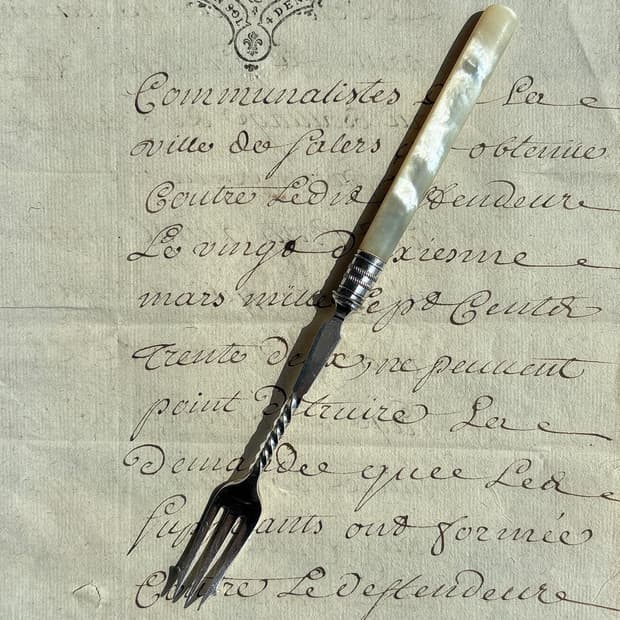 SOL 4 DEN
Communalistes La
ville de Salers obtenue
Contre Ledit deffendeur
Le vingt deuxiesme
mars mille Sept Cents
Trente deux, ne peuvent
point detruire La
Demandee quee Led
Supliants ont formée
Contre Le deffendeur